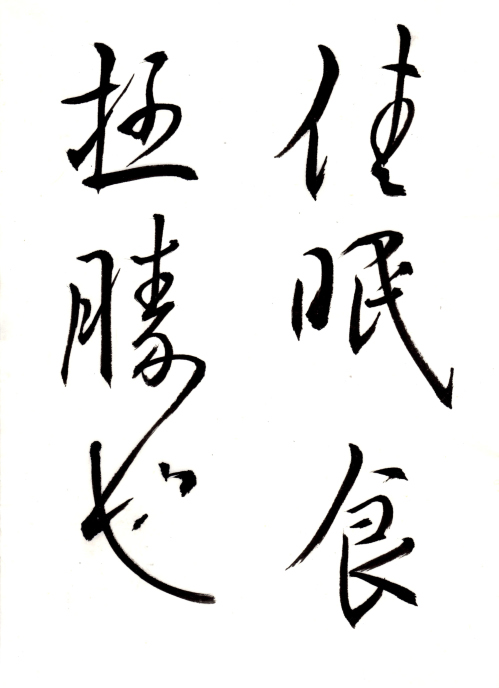 佳眠食
極勝也